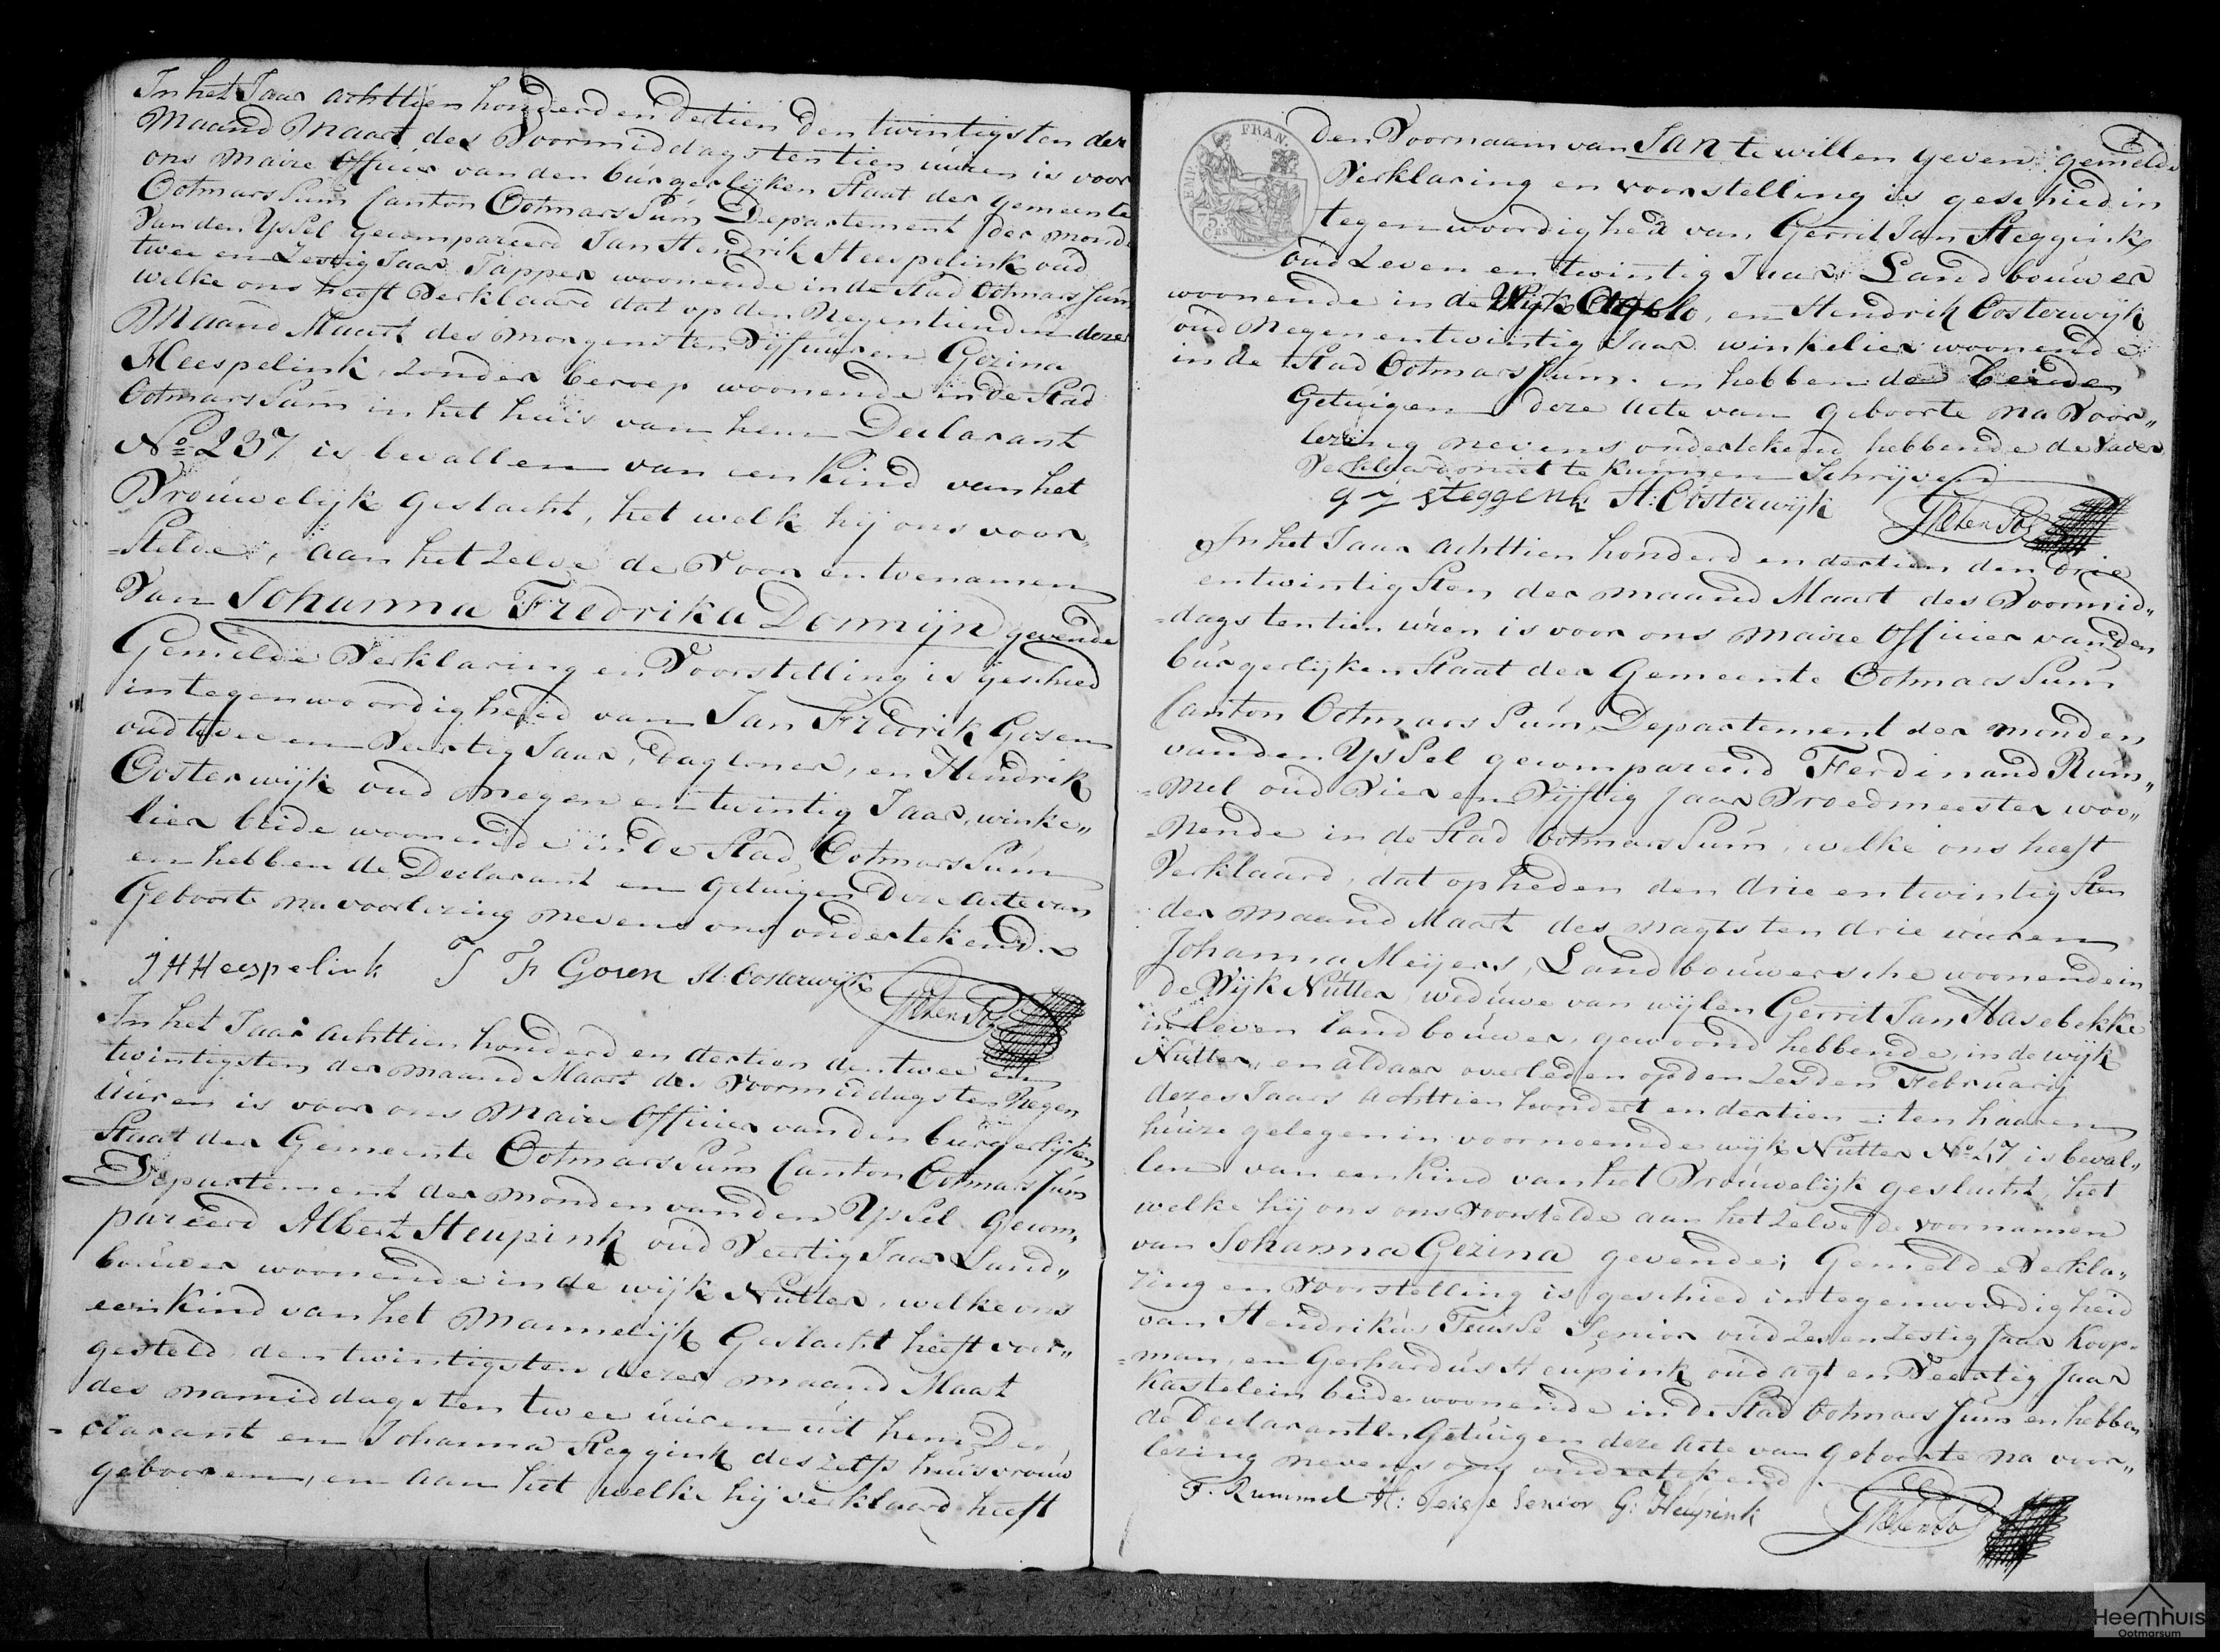 In het Jaar achttien honderd en dertien den twintigsten der
Maand Maart des Voormiddags ten tien uúren is voor
ons Maire Officier van den búrgerlijken Staat der Gemeente
Ootmarssum Canton Ootmarssúm Departement der monden
Van den Yssel gecompareerd Jan Hendrik Heespelink oud
twee en Zestig Jaar Tapper woonende in de Stad Ootmarssúm
welke ons heeft Verklaard dat op den Negentienden dezer
Maand Maart des morgens ten Vijf uúren Gezina
Heespelink, Zonder beroep woonende in de Stad
Ootmarssúm in het huis van hem Declarant
No 237 is bevallen van een Kind van het
Vrouwelijk Geslacht, het welk hij ons voor-
-stelde, aan het Zelve de Voor en toenamen
Van Johanna Fredrika Donnijn gevende
Gemelde Verklaring en Voorstelling is geschied
in tegenwoordigheid van Jan Fredrik Gosen
oud twee en Veertig Jaar, Dagloner, en Hendrik
Oosterwijk oud negen en twintig Jaar, winke„
lier beide woonende in de Stad Ootmarssúm
en hebben de Declarant en Getuigen deze acte van
Geboorte na voorlezing nevens ons ondertekend.
J H Heespelink J F Gosen H: Oosterwijk
In het Jaar achttien honderd en dertien den twee en
twintigsten der maand Maart des Voormiddags ten Negen
Uúren is voor ons Maire Officier van den búrgerlijken
Staat der Gemeente Ootmarssúm Canton Ootmarssúm
Departement der Monden van den Yssel Gecom„
pareerd Albert Heupink oud Veertig Jaar Land„
boúwer woonende in de wijk Nutter, welke ons
een Kind van het Mannelijk Geslacht heeft voor„
gesteld, den twintigsten dezer maand Maart
des namiddags ten twee uúren uit hem De„
-clarant en Johanna Steggink deszelfs huisvrouw
gebooren, en aan het welke hij verklaard heeft
EMP. FRAN.
75
Den Voornaam van JAN te willen geven gemelde
Verklaring en voorstelling is geschied in
tegenwoordigheid van Gerrit Jan Steggink
oud Zeven en twintig Jaar Landbouwer
woonende in de Wijk Agelo, en Hendrik Oosterwijk
oud Negen en twintig Jaar winkelier woonende
in de Stad Ootmarssúm. en hebben de beiden
Getuigen deze acte van geboorte na Voor„
lezing nevens ondertekend hebbende de Vader
Verklaard niet te Kunnen Schrijven
g j steggenk H: Oosterwijk
In het Jaar achttien honderd en dertien den drie
en twintigsten der maand Maart des Voormid„
-dags ten tien uren is voor ons Maire Officier van den
búrgerlijken Staat der Gemeente Ootmarssúm
Canton Ootmarssúm, Departement der monden
van den Yssel gecompareerd Ferdinand Rum„
-mel oud Vier en Vijftig Jaar Vroedmeester woo„
-nende in de Stad Ootmarssúm, welke ons heeft
Verklaard, dat op heden den drie en twintigsten
der Maand Maart des nagts ten drie uúren
Johanna Meijers, Landboúwersche woonende in
de Wijk Nutter, weduwe van wijlen Gerrit Jan Hasebekke
in leven landboúwer, gewoond hebbende, in de wijk
Nútter, en aldaar overleden op den Zesden Februarij
dezes Jaars achttien hondert en dertien: ten haaren
húize gelegen in voornoemde wijk Nutter No 47 is beval„
len van een kind van het Vroúwelijk geslacht, het
welke hij ons ons Voorstelde aan het Zelve de voornamen
van Johanna Gezina gevende; Gemelde Verkla„
ring en Voorstelling is geschied in tegenwoordigheid
van Hendrikús Teusse Senior oud Zes en Zestig Jaar Koop-
-man, en Gerhardús Heupink oud agt en Veertig Jaar
Kastelein beide woonende in de Stad Ootmarssúm en hebben
de Declarant en Getúigen deze Acte van geboorte na voor„
lezing nevens ons ondertekend.
F. Rummel H: Teusse Senior G: Heupink
Heemhuis
Ootmarsum